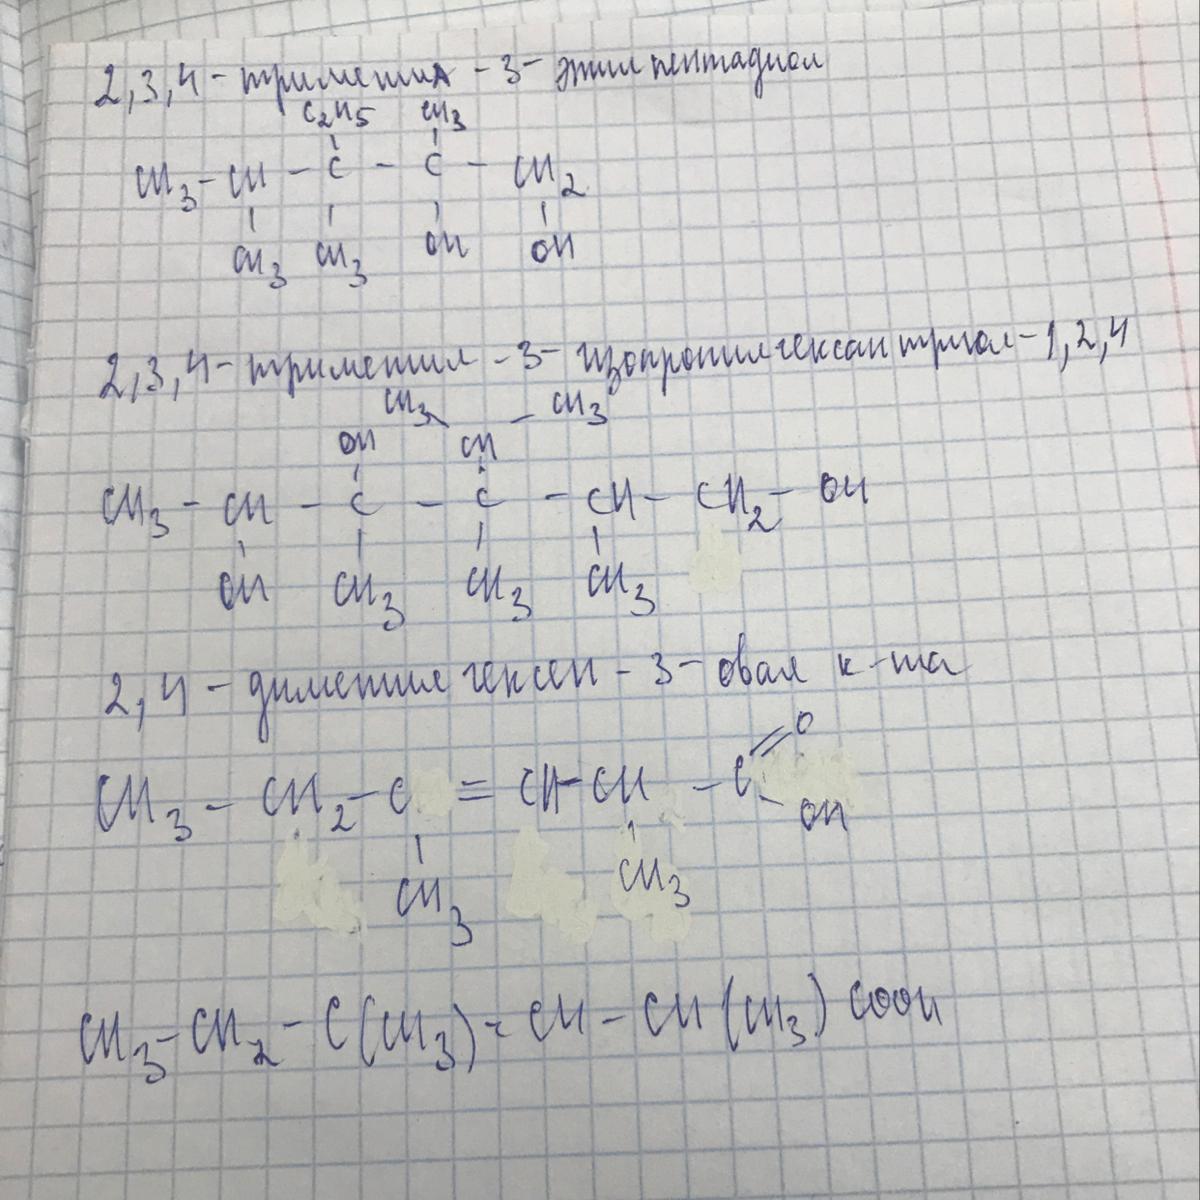 2,3,4-триметил-3-этилпентадиол
C2H5 CH3
CH3-CH-C-C-CH2
CH3 CH3 OH OH
2,3,4-триметил-3-изопропилгексантриол-1,2,4
CH3 CH3
OH CH
CH3-CH-C-C-CH-CH2-OH
OH CH3 CH3 CH3
2,4-диметилгексен-3-овая к-та
O
CH3-CH2-C=CH-CH-C
OH
CH3 CH3
CH3-CH2-C(CH3)=CH-CH(CH3)COOH